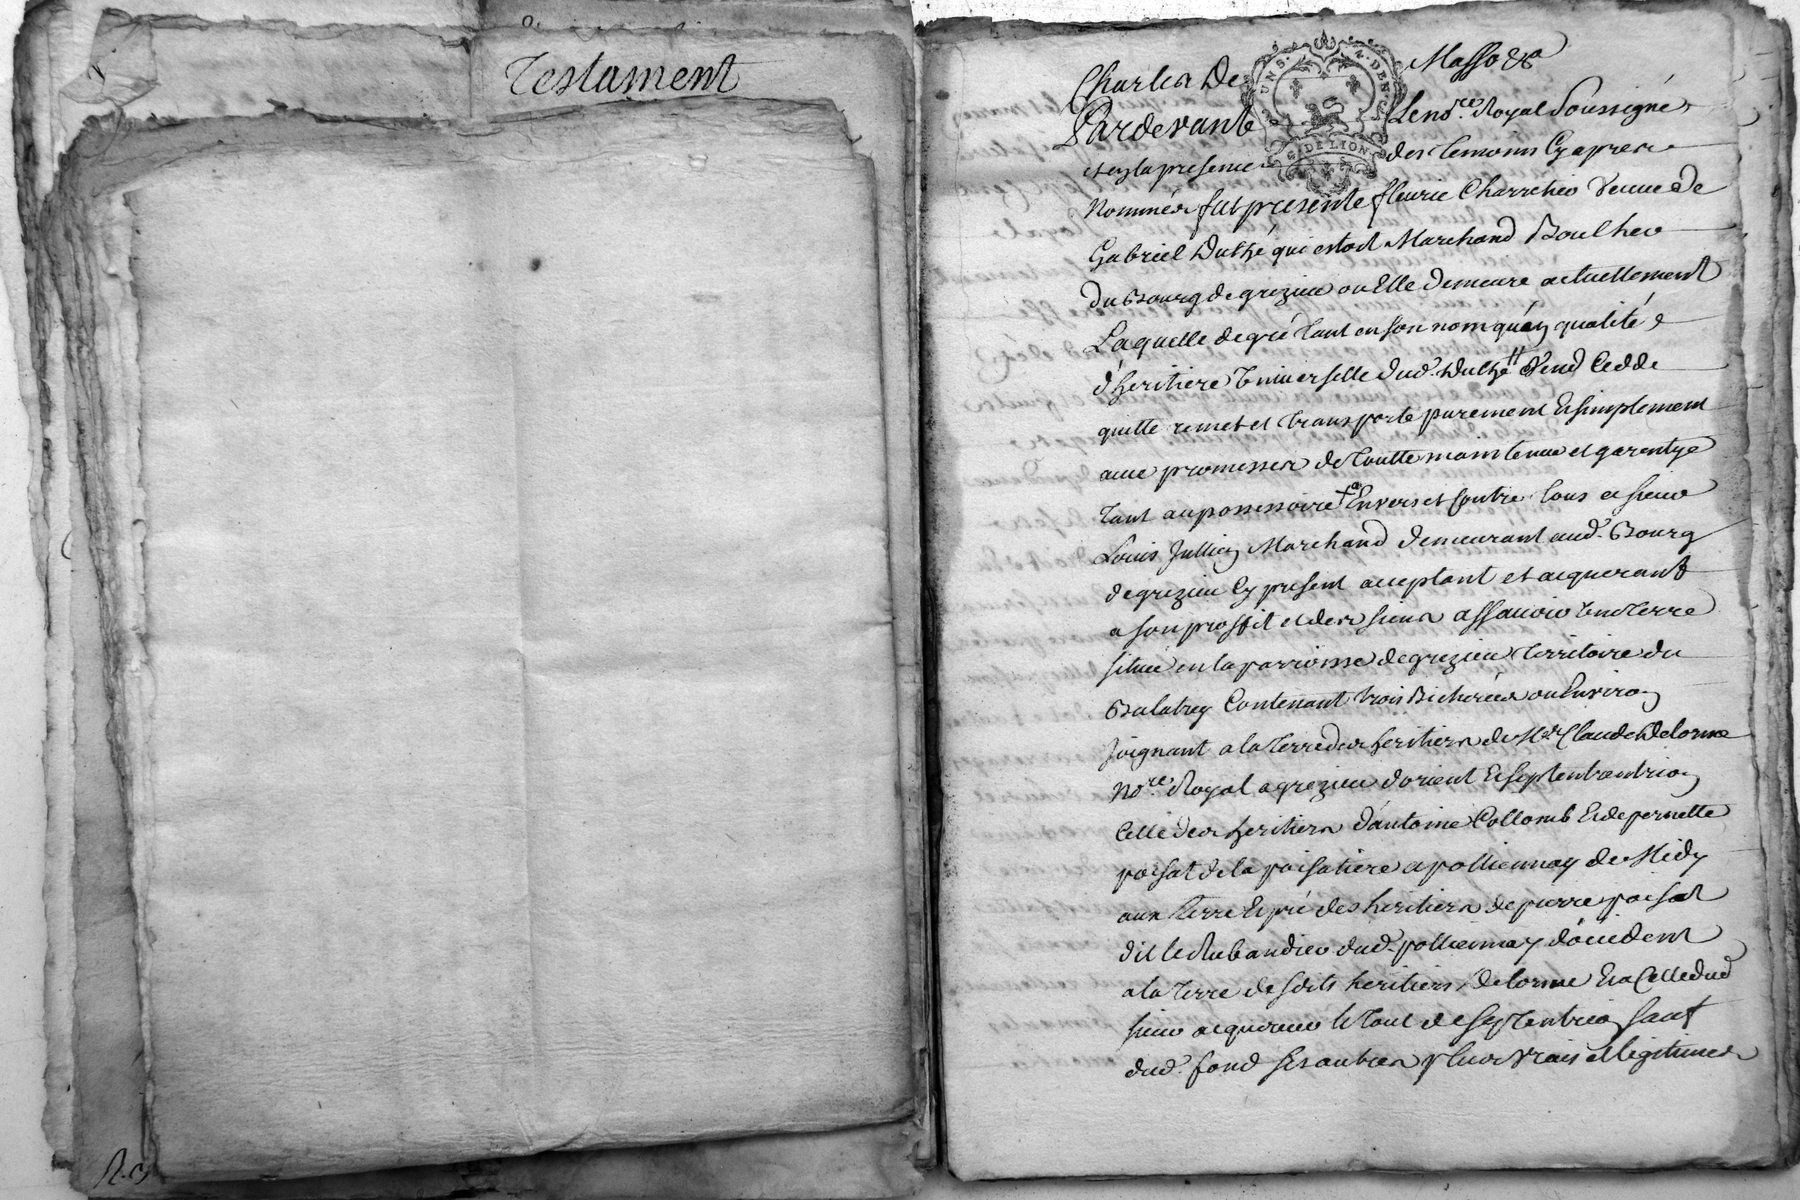 Testament
Charles De Masso &a
UN S. 4. DEN.
G. DE LION
Pardevant Le no.re Royal Soussigné
et en la presence des temoins Cy apres
Nommés fut presente fleurie Charretier Veuve de
Gabriel Duthé qui estoit Marchand Boulher
du Bourg de grezieu ou Elle demeure actuellement
Laquelle de gré tant en son nom qu'en qualité
d'heritiere Universelle dud. Duthé # Vend Cedde
quitte remet et transporte purement et simplement
avec promesses de toutte maintenue et garentye
tant au possessoire + Envers et Contre tous a sieur
Louis Jullien Marchand demeurant aud. Bourg
de grezieu Cy present acceptant et acquerant
a son proffit et des siens assavoir une terre
située en la parroisse de grezieu territoire du
Balatrey Contenant trois Bicherées ou Environ
Joignant a la terre des heritiers de Me Claude Delorme
No.re Royal a grezieu d'orient et septentrion
Celle des heritiers d'antoine Collomb et de pernette
poisat de la poisatiere a pollionnay de Midy
aux terre et pré des heritiers de pierre poisat
dit le Rubandier dud. pollionnay d'occident
a la terre desdits heritiers Delorme et a Celle dud
sieur acquereur le tout de septentrion sauf
dud. fond ses autres plus vrais et legitimes